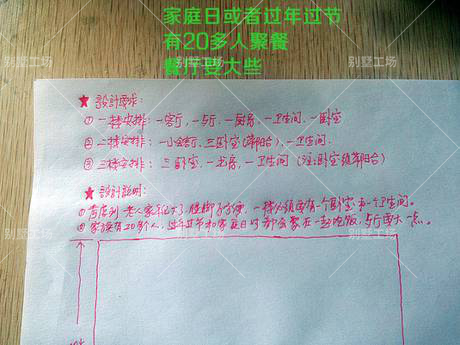 家庭日或者过年过节
有20多人聚餐
餐厅要大些
别墅工场 别墅工场 别墅工场
★设計要求:
① 一楼安排: 一客厅, 一歺厅, 一厨房, 一卫生间, 一卧室
② 二楼安排: 一小客厅, 三卧室(帶阳台), 一卫生间.
③ 三楼安排: 三卧室, 一书房, 一卫生间 (注:卧室須帶阳台)
★設計説明:
①考虑到老人家年纪大了, 腿脚不方便, 一楼必须要有一个卧室和一个卫生间。
②家族有20多个人, 过年过节和家庭日时都会聚在一起吃饭, 歺厅要大一点。
别墅工场 别墅工场 别墅工场